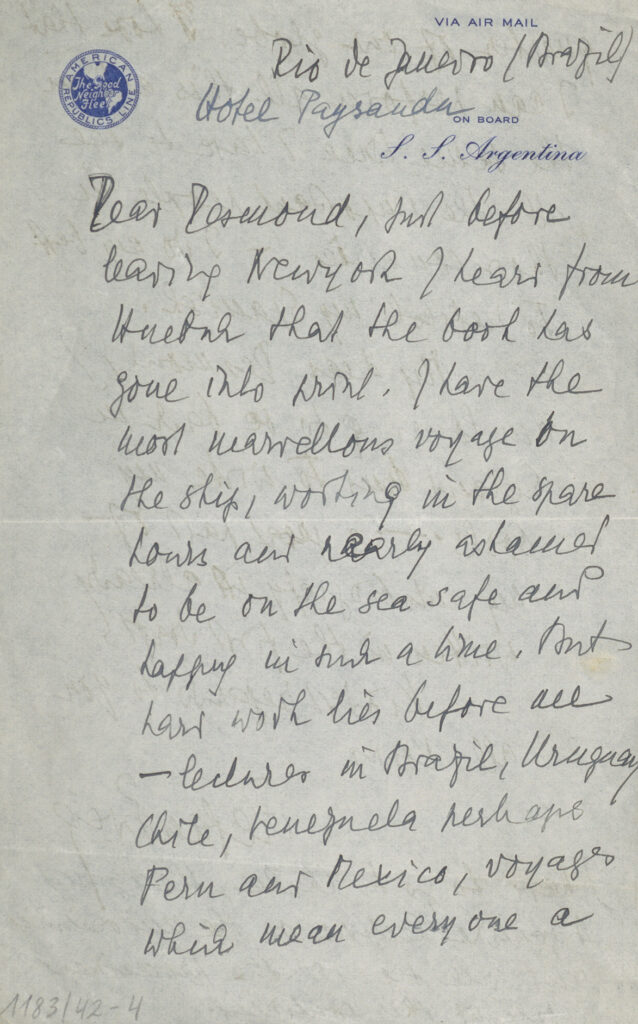 VIA AIR MAIL
Rio de Janeiro (Brazil)
AMERICAN REPUBLICS LINE
The Good Neighbor Fleet
Hotel Paysandu
ON BOARD
S. S. Argentina
Dear Desmond, just before
leaving Newyork I heard from
Huebsch that the book has
gone into print. I have the
most marvellous voyage on
the ship, working in the spare
hours and nearly ashamed
to be on the sea safe and
happy in such a time. But
hard work lies before me
– lectures in Brazil, Uruguay
Chile, Venezuela perhaps
Peru and Mexico, voyages
which mean everyone a
1183/42-4